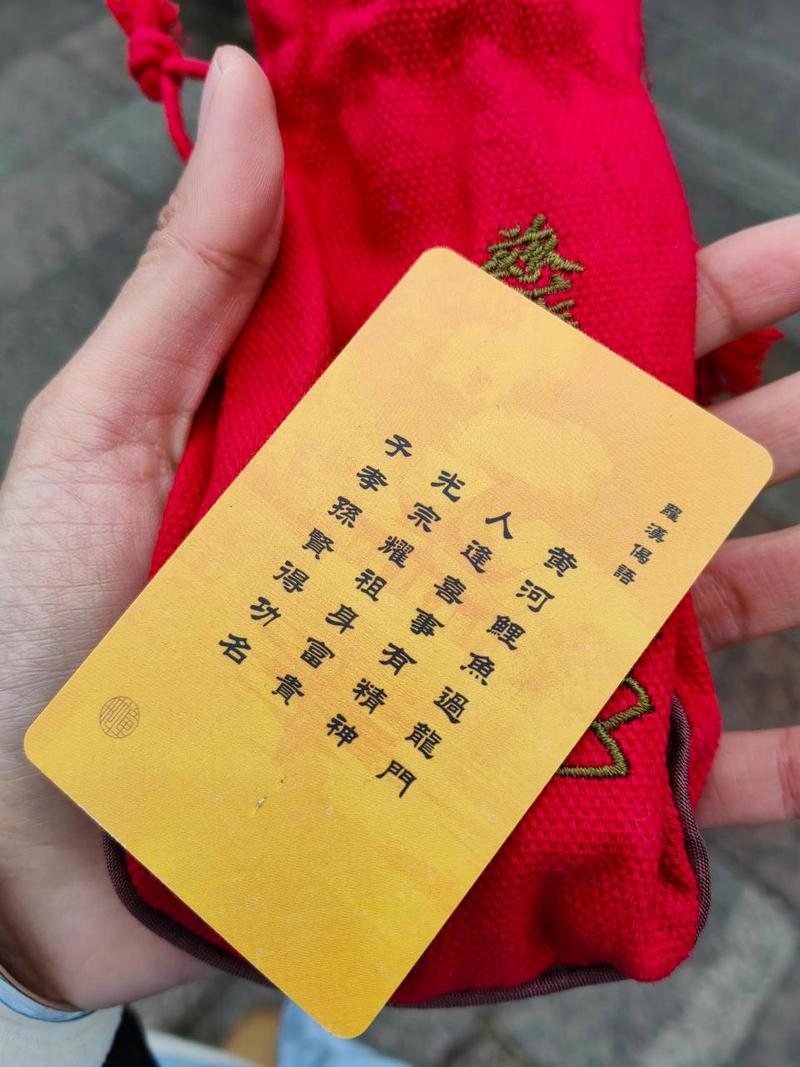 羅漢偈語
黄河鯉魚過龍門
人逢喜事有精神
光宗耀祖身富貴
子孝孫賢得功名